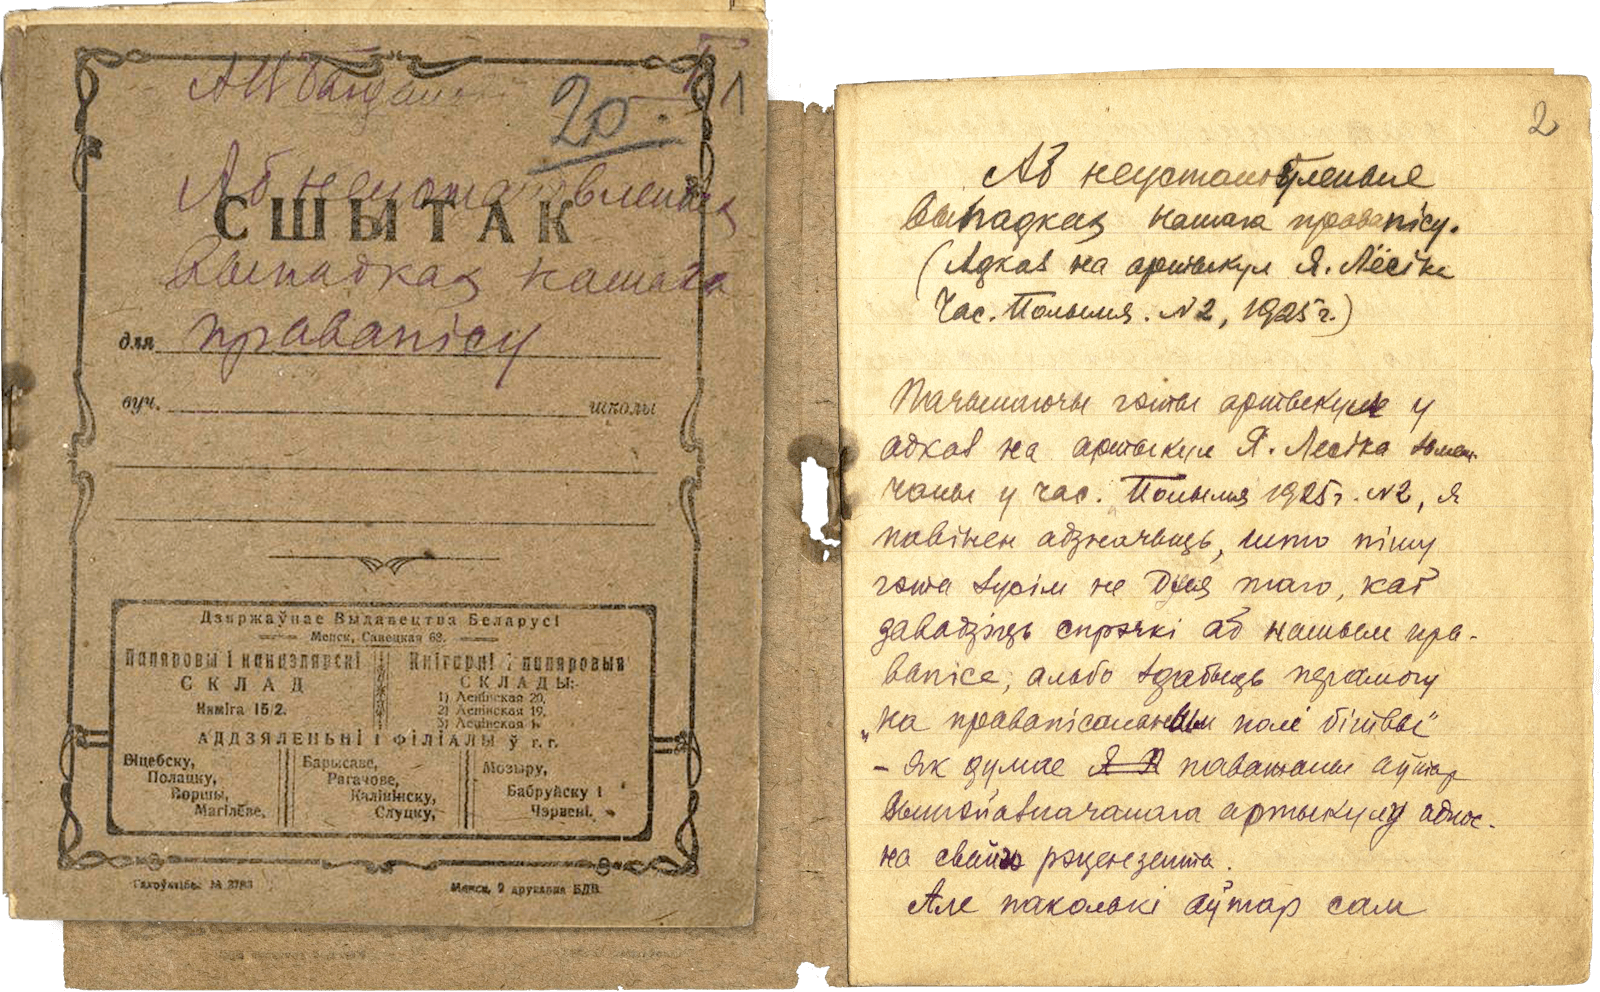 1
20.
Аб неустановленых
СШЫТАК
выпадках нашага
для правапісу
вуч. школы
Дзяржаўнае Выдавецтва Беларусі
Менск, Савецкая 63.
Папяровы і канцэлярскі
СКЛАД
Няміга 15/2.
Кнігарні і папяровыя
СКЛАДЫ:
1) Ленінская 20,
2) Ленінская 19,
3) Ленінская 1.
АДДЗЯЛЕНЬНІ І ФІЛІАЛЫ ў г. г.
Віцебску,
Полацку,
Воршы,
Магілёве,
Барысаве,
Рагачове,
Калінінску,
Слуцку,
Мозыру,
Бабруйску і
Чэрвені.
Галоўлітбел № 3783
Менск, 2 друкарня БДВ.
2
Аб неустаноўленые
выпадках нашага правапісу.
(Адказ на артыкул Я. Лёсіка
Час. Полымя. №2, 1925 г.)
Пачынаючы гэты артыкул у
адказ на артыкул Я. Лесіка
чаны у час. Полымя 1925 г. №2, я
павінен адзначыць, што пішу
гэта зусім не дзеля таго, каб
давадзіць спрэчкі аб нашым пра-
вапісе, альбо здабыць перамогу
„на правапісальным полі бітвы"
- як думае паважаны аўтар
вышэйазначанага артыкулу аднос-
на свайго рэцэнзента.
Але паколькі аўтар сам